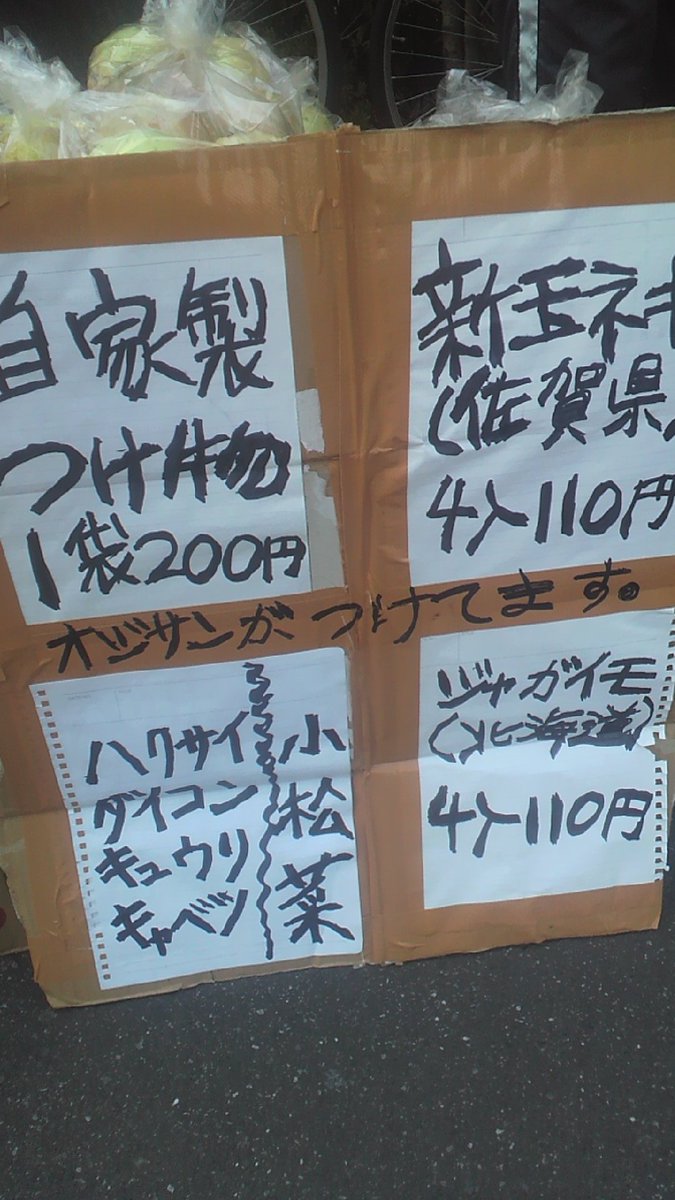 自家製
つけ物
1袋200円
新玉ネギ
(佐賀県)
4入110円
オジサンがつけてます。
ハクサイ
ダイコン
キュウリ
キャベツ
小松菜
ジャガイモ
(北海道)
4入110円